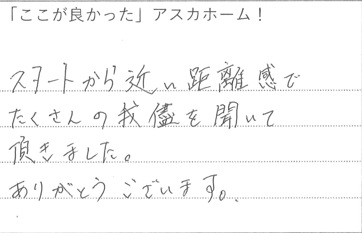 「ここが良かった」アスカホーム！
スタートから近い距離感で
たくさんの我儘を聞いて
頂きました。
ありがとうございます。